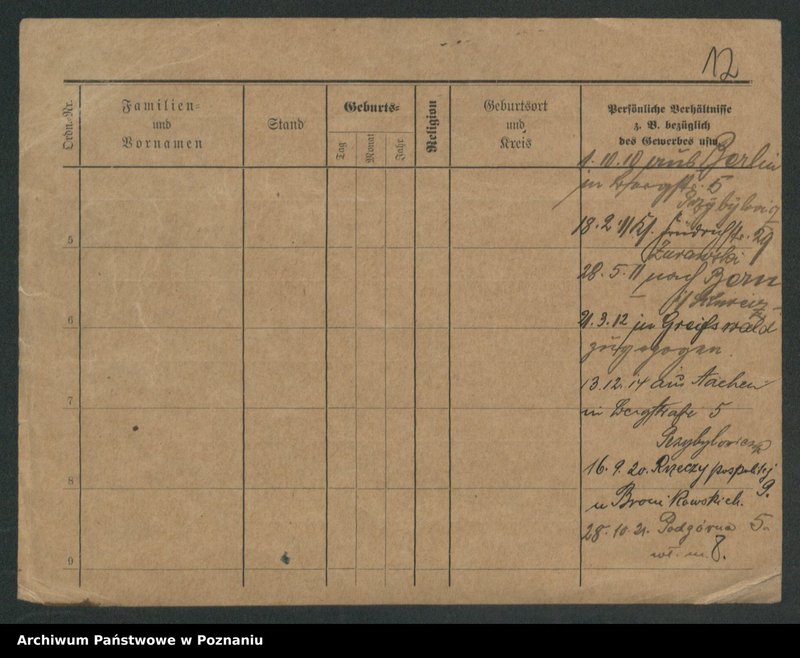 12
Ordn.-Nr.
Familien=
und
Vornamen
Stand
Geburts=
Tag
Monat
Jahr
Religion
Geburtsort
und
Kreis
Persönliche Verhältnisse
z. B. bezüglich
des Gewerbes usw.
1. 10. 10 aus Berlin
in Bergstr. 5
18. 2. 11 29
Zurawski
28. 5. 11 nach
21. 3. 12 in Greifswald
zugezogen.
13. 12. 14 aus Aachen
in Bergstraße 5
Przybylowicz
16. 9. 20. Rzeczypospolitej 9.
u Bronikowskich.
28. 10. 21. Podgórna 5.
m. 8.
5
6
7
8
9
Archiwum Państwowe w Poznaniu